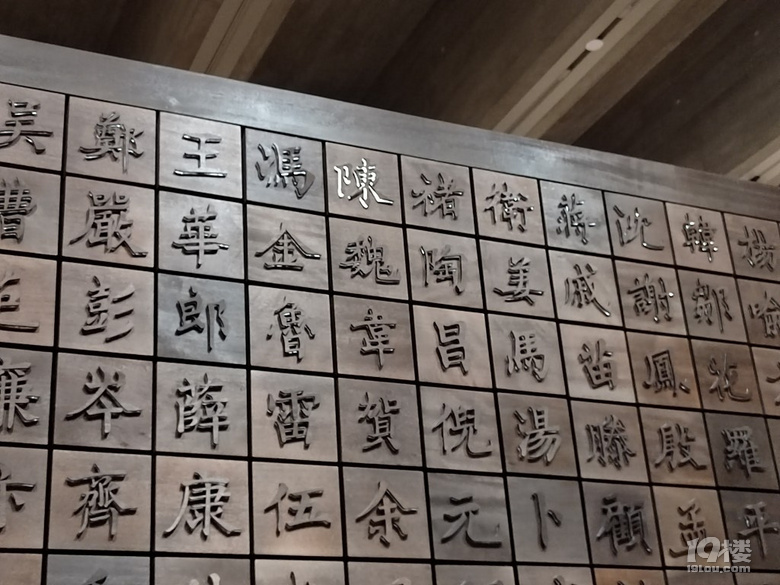 吳鄭王馮陳褚衛蔣沈韓楊
曹嚴華金魏陶姜戚謝鄒喻
彭郎魯韋昌馬苗鳳花
廉岑薛雷賀倪湯滕殷羅
卞齊康伍余元卜顧孟平
19楼
19lou.com